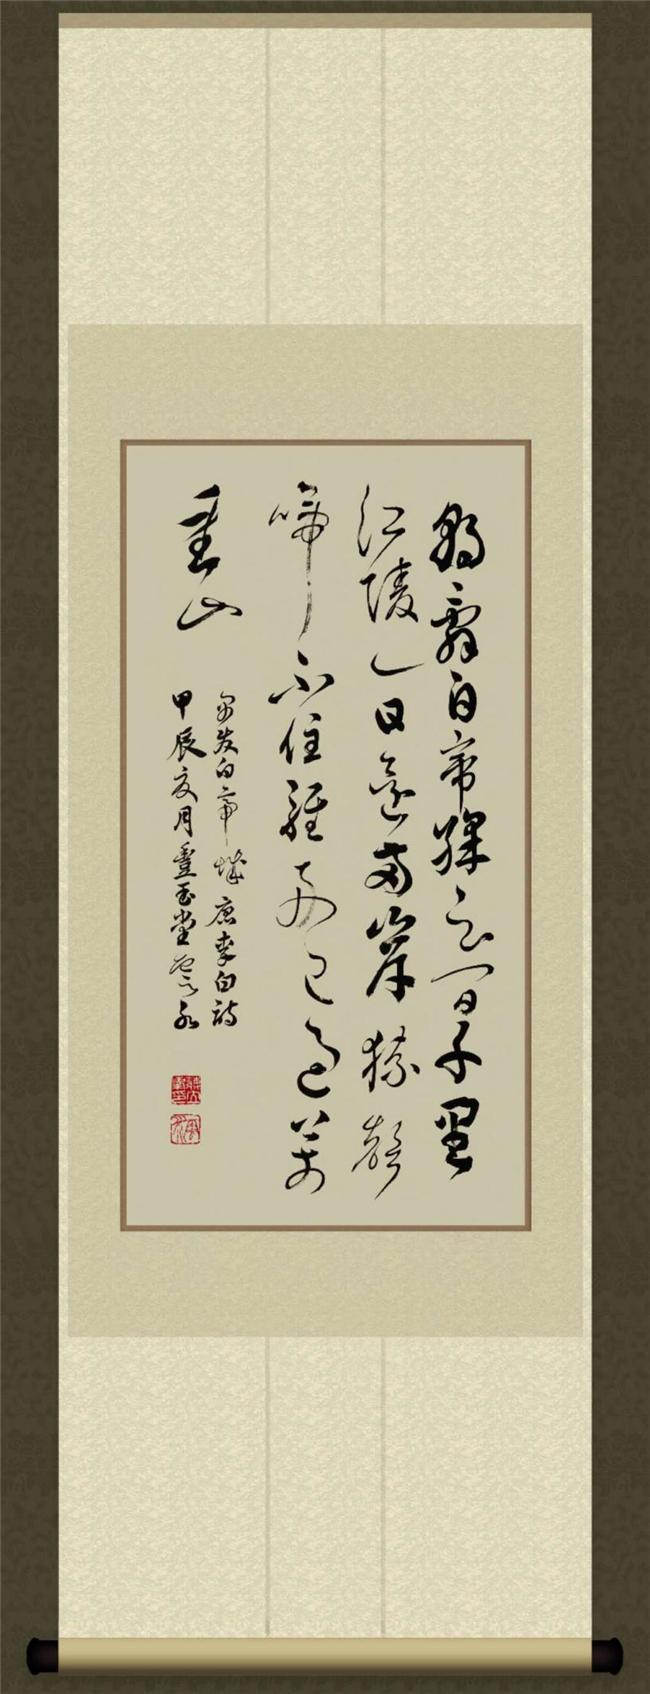 朝辭白帝綵云間千里
江陵一日還兩岸猿聲
啼不住輕舟已過萬
重山
早发白帝城唐李白詩
甲辰夏月玉堂